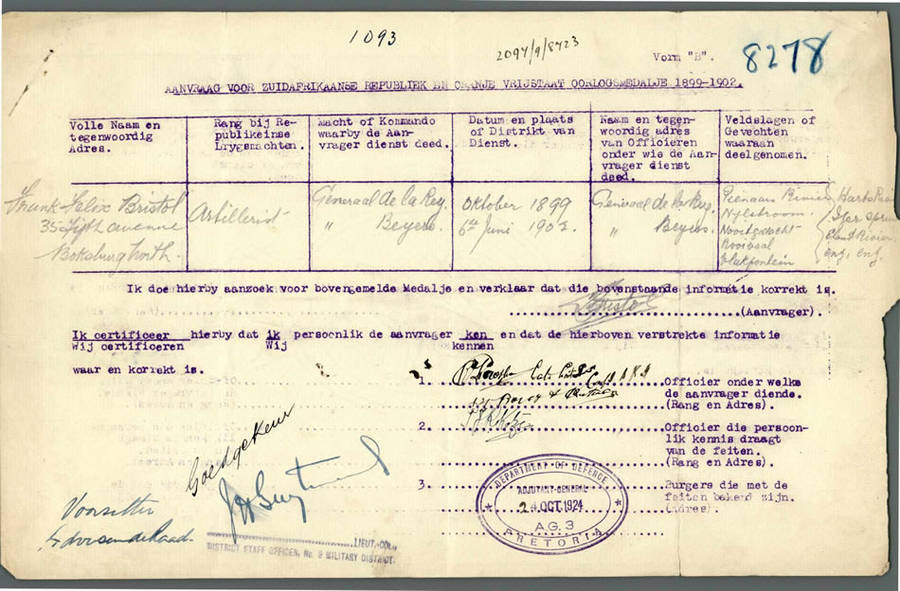 1093
2097/9/8723
Vorm "B".
8278
AANVRAAG VOOR ZUIDAFRIKAANSE REPUBLIEK EN ORANJE VRIJSTAAT OORLOGSMEDALJE 1899-1902.
Volle Naam en
tegenwoordig
Adres.
Rang bij Re-
publikeinse
Krygsmachten.
Macht of Kommando
waarby de Aan-
vrager dienst deed.
Datum en plaats
of Distrikt van
Dienst.
Naam en tegen-
woordig adres
van Officieren
onder wie de Aan-
vrager dienst
deed.
Veldslagen of
Gevechten
waaraan
deelgenomen.
Frank Felix Bristol
35 Fifth Avenue
Boksburg North.
Artillerist
Generaal de la Rey.
" Beyers.
Oktober 1899
6de Juni 1902.
Generaal de la Rey.
" Beyers.
Pienaars Rivier
Nylstroom.
Nooitgedacht
Rooiwal
Vlakfontein
Harts Rivier
enz. enz.
Ik doe hierby aanzoek voor bovengemelde Medalje en verklaar dat die bovenstaande informatie korrekt is.
Bristol
(Aanvrager).
Ik certificeer hierby dat ik persoonlik de aanvrager ken en dat de hierboven verstrekte informatie
Wij certificeren Wij kennen
waar en korrekt is.
1. Officier onder welke
de aanvrager diende.
(Rang en Adres).
2. Officier die persoon-
lik kennis draagt
van de feiten.
(Rang en Adres).
3. Burgers die met de
feiten bekend zijn.
(Adres).
Goedgekeur
Voorsitter
Adviserende Raad.
LIEUT.-COL.
DISTRICT STAFF OFFICER, No. 9 MILITARY DISTRICT.
DEPARTMENT OF DEFENCE
ADJUTANT-GENERAL
OCT. 1924
A.G. 3
PRETORIA